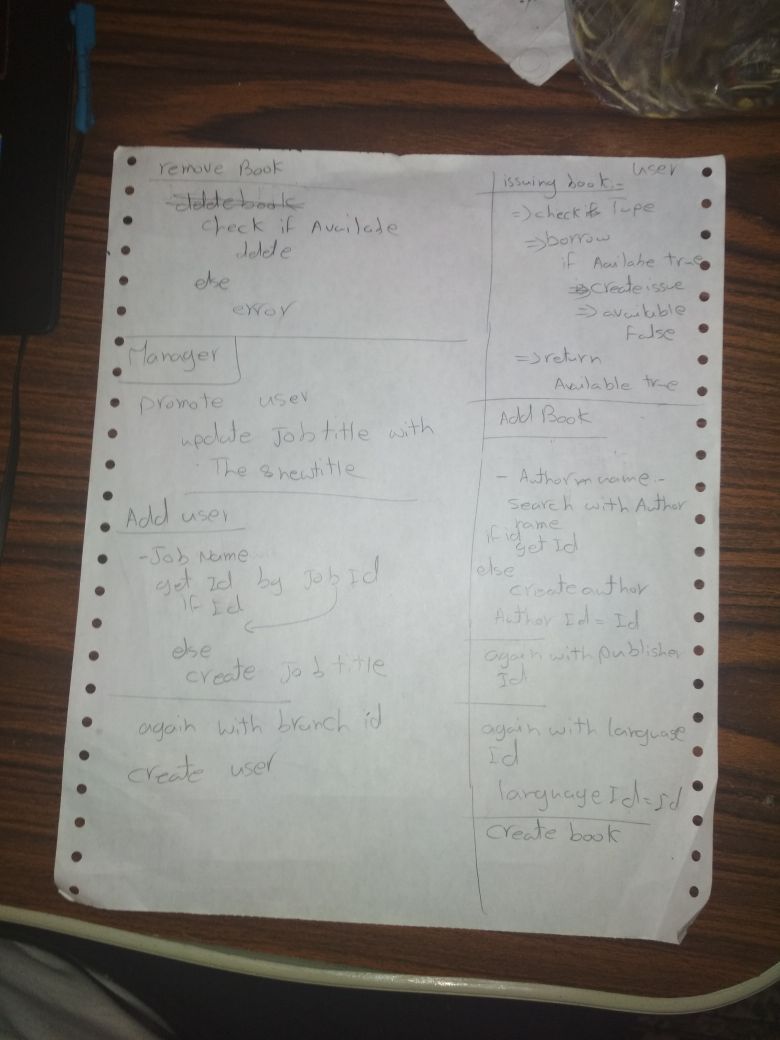 remove Book
check if Availabe
delete
else
error
Manager
promote user
update Job title with
The newtitle
Add user
-Job Name
get Id by Job Id
if Id
else
create Job title
again with branch id
create user
user
issuing book:-
=> check if Type
=> borrow
if Availabe true
=> Create issue
=> available
False
=> return
Available true
Add Book
- Author name:-
search with Author
name
if id
get Id
else
create author
Author Id = Id
again with publisher
Id
again with language
Id
language Id = Id
Create book